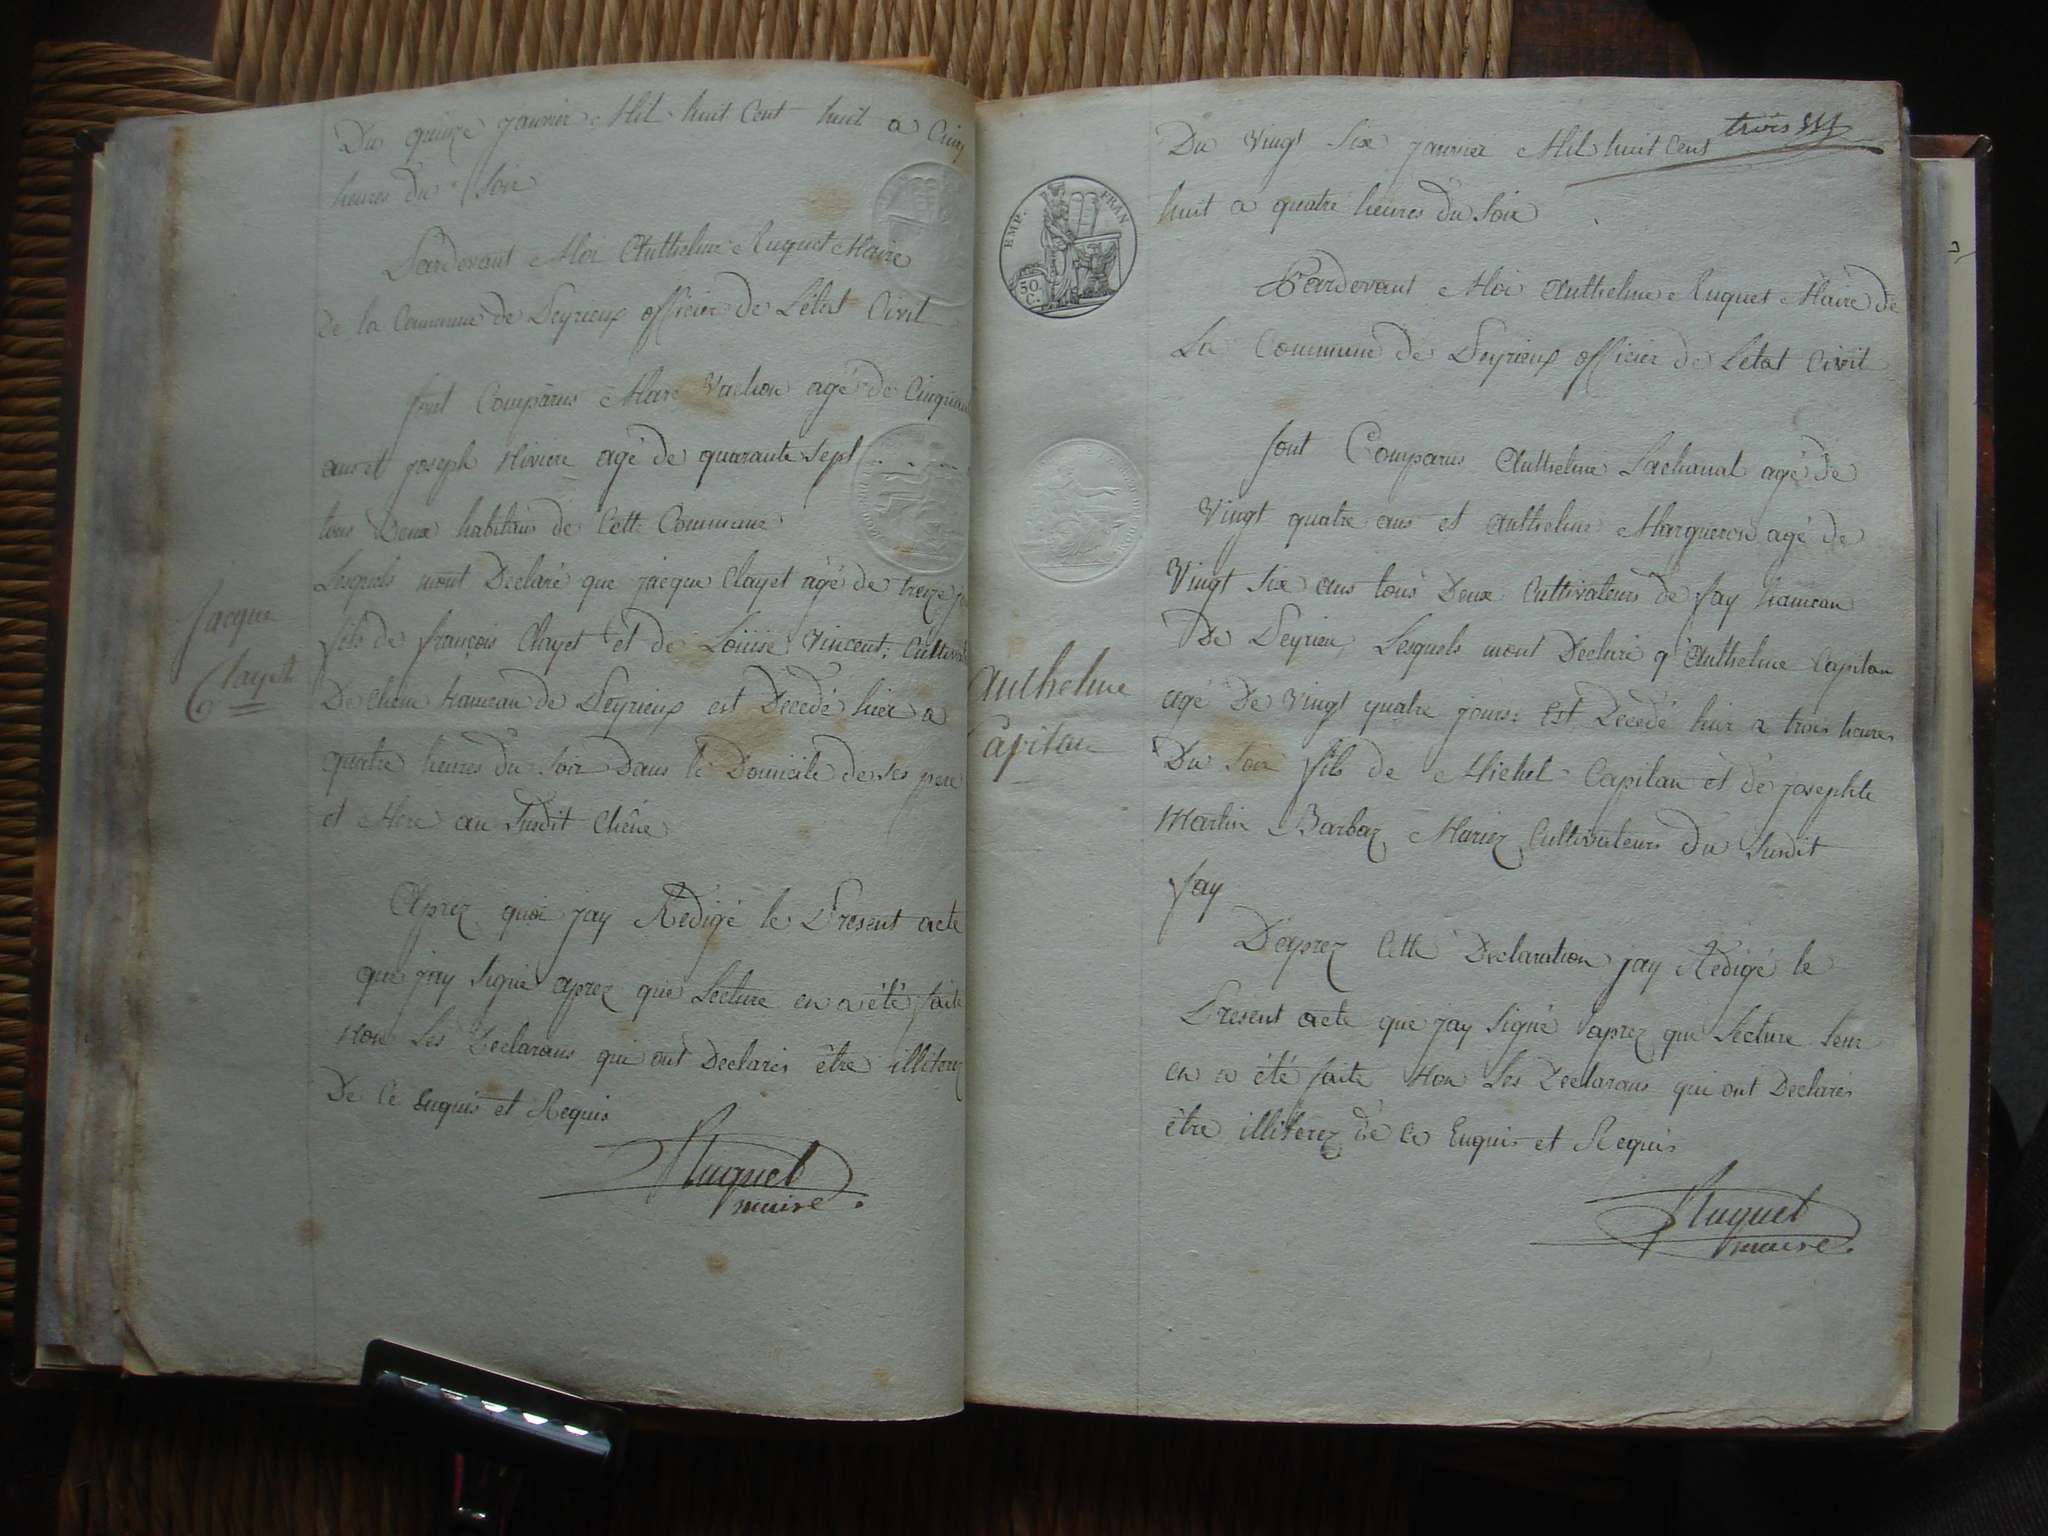 Du quinze janvier Mil huit Cent huit a Cinq
heures du Soir
Pardevant Moi Anthelme Ruquet Maire
De la Commune de Peyrieux officier de Létat Civil
sont Comparus Marc Vachon agé de Cinquante
ans et joseph Riviere agé de quarante sept
tous Deux habitans de Cette Commune
Lesquels mont Declaré que jacque Clayet agé de treize
fils de françois Clayet et de Loüise Vincent Cultiv
De Chene hameau de Peyrieux est Decedé hier a
quatre heures du Soir Dans le Domicile de ses pere
et Mere au Susdit Chêne
Jacque
Clayet
Aprez quoi jay Redigé le Present acte
que jay Signé aprez que Lecture en a été faite
Non Les Declarans qui ont Declarés être illiterez
De Ce Enquis et Requis
Ruquet
maire
trois
Du Vingt Six janvier Mil huit Cent
huit a quatre heures du Soir
EMP. FRAN
50.
C.
Pardevant Moi Anthelme Ruquet Maire De
La Commune de Peyrieux officier de Letat Civil
sont Comparus Anthelme Lachanal agé de
Vingt quatre ans et Anthelme Margueron agé de
Vingt Six ans tous Deux Cultivateurs de fay hameau
De Peyrieu, Lesquels mont Declaré q' Anthelme Capitan
agé De Vingt quatre jours est Decedé hier a trois heures
Du Soir fils de Michel Capitan et de josephte
Martin Barbaz Mariez Cultivateurs du Susdit
fay
Anthelme
Capitan
D'aprez Cette Declaration jay Redigé le
Present acte que jay Signé aprez que Lecture leur
en a été faite Non Les Declarans qui ont Declarés
être illiterez de ce Enquis et Requis
Ruquet
maire